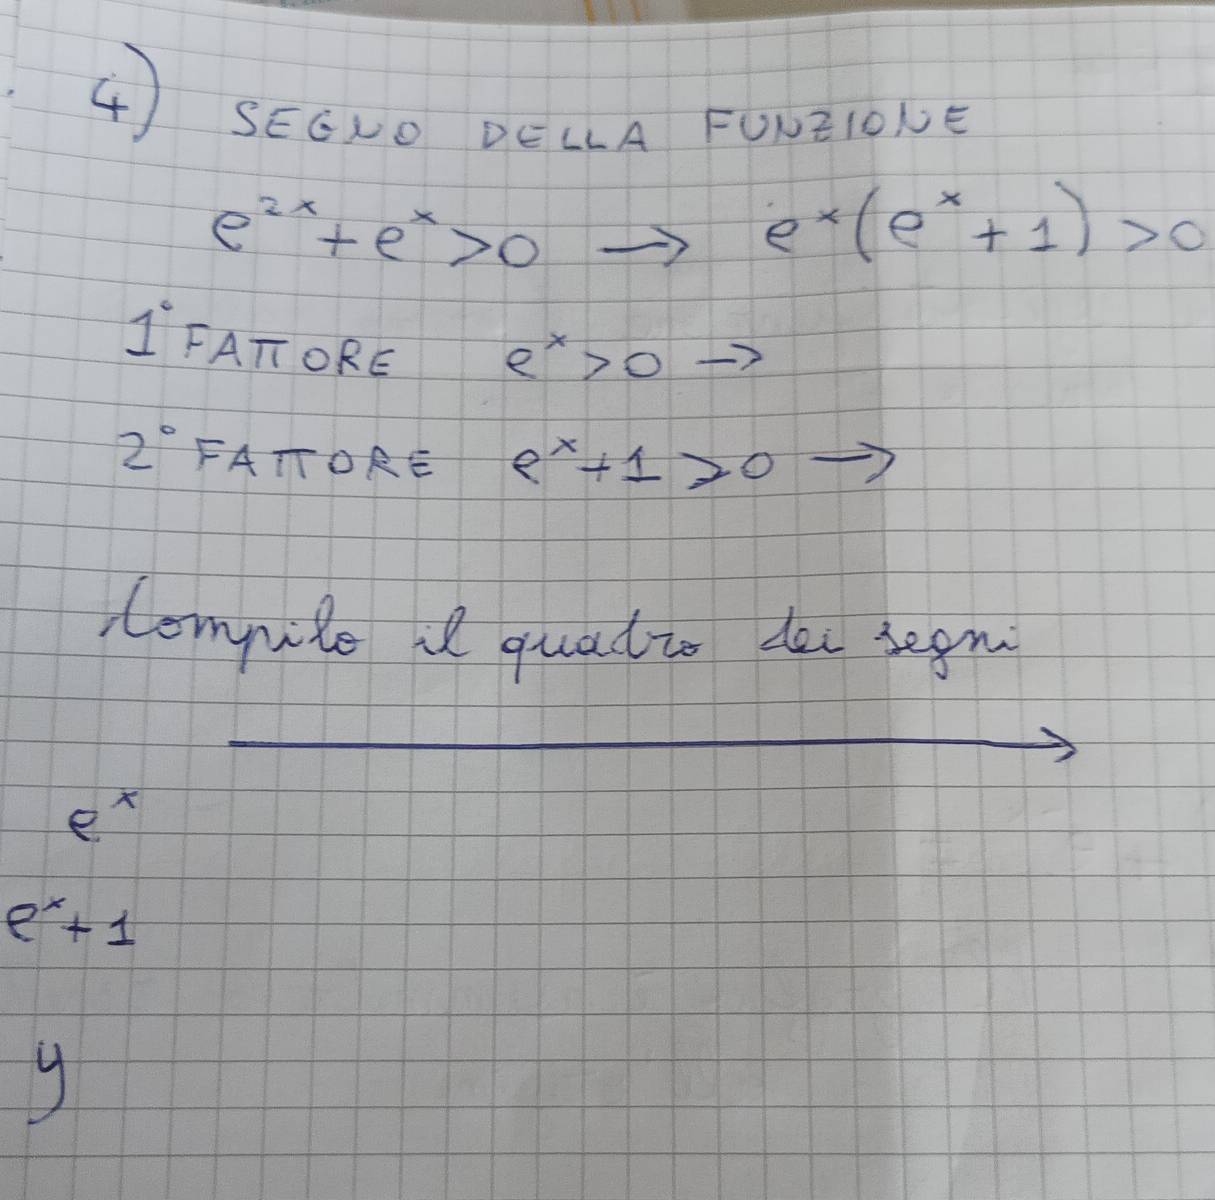 4) SEGNO DELLA FUNZIONE
e²ˣ + eˣ > 0 → eˣ(eˣ + 1) > 0
1° FATTORE eˣ > 0 →
2° FATTORE eˣ + 1 > 0 →
Compilo il quadro dei segni
eˣ
eˣ + 1
y